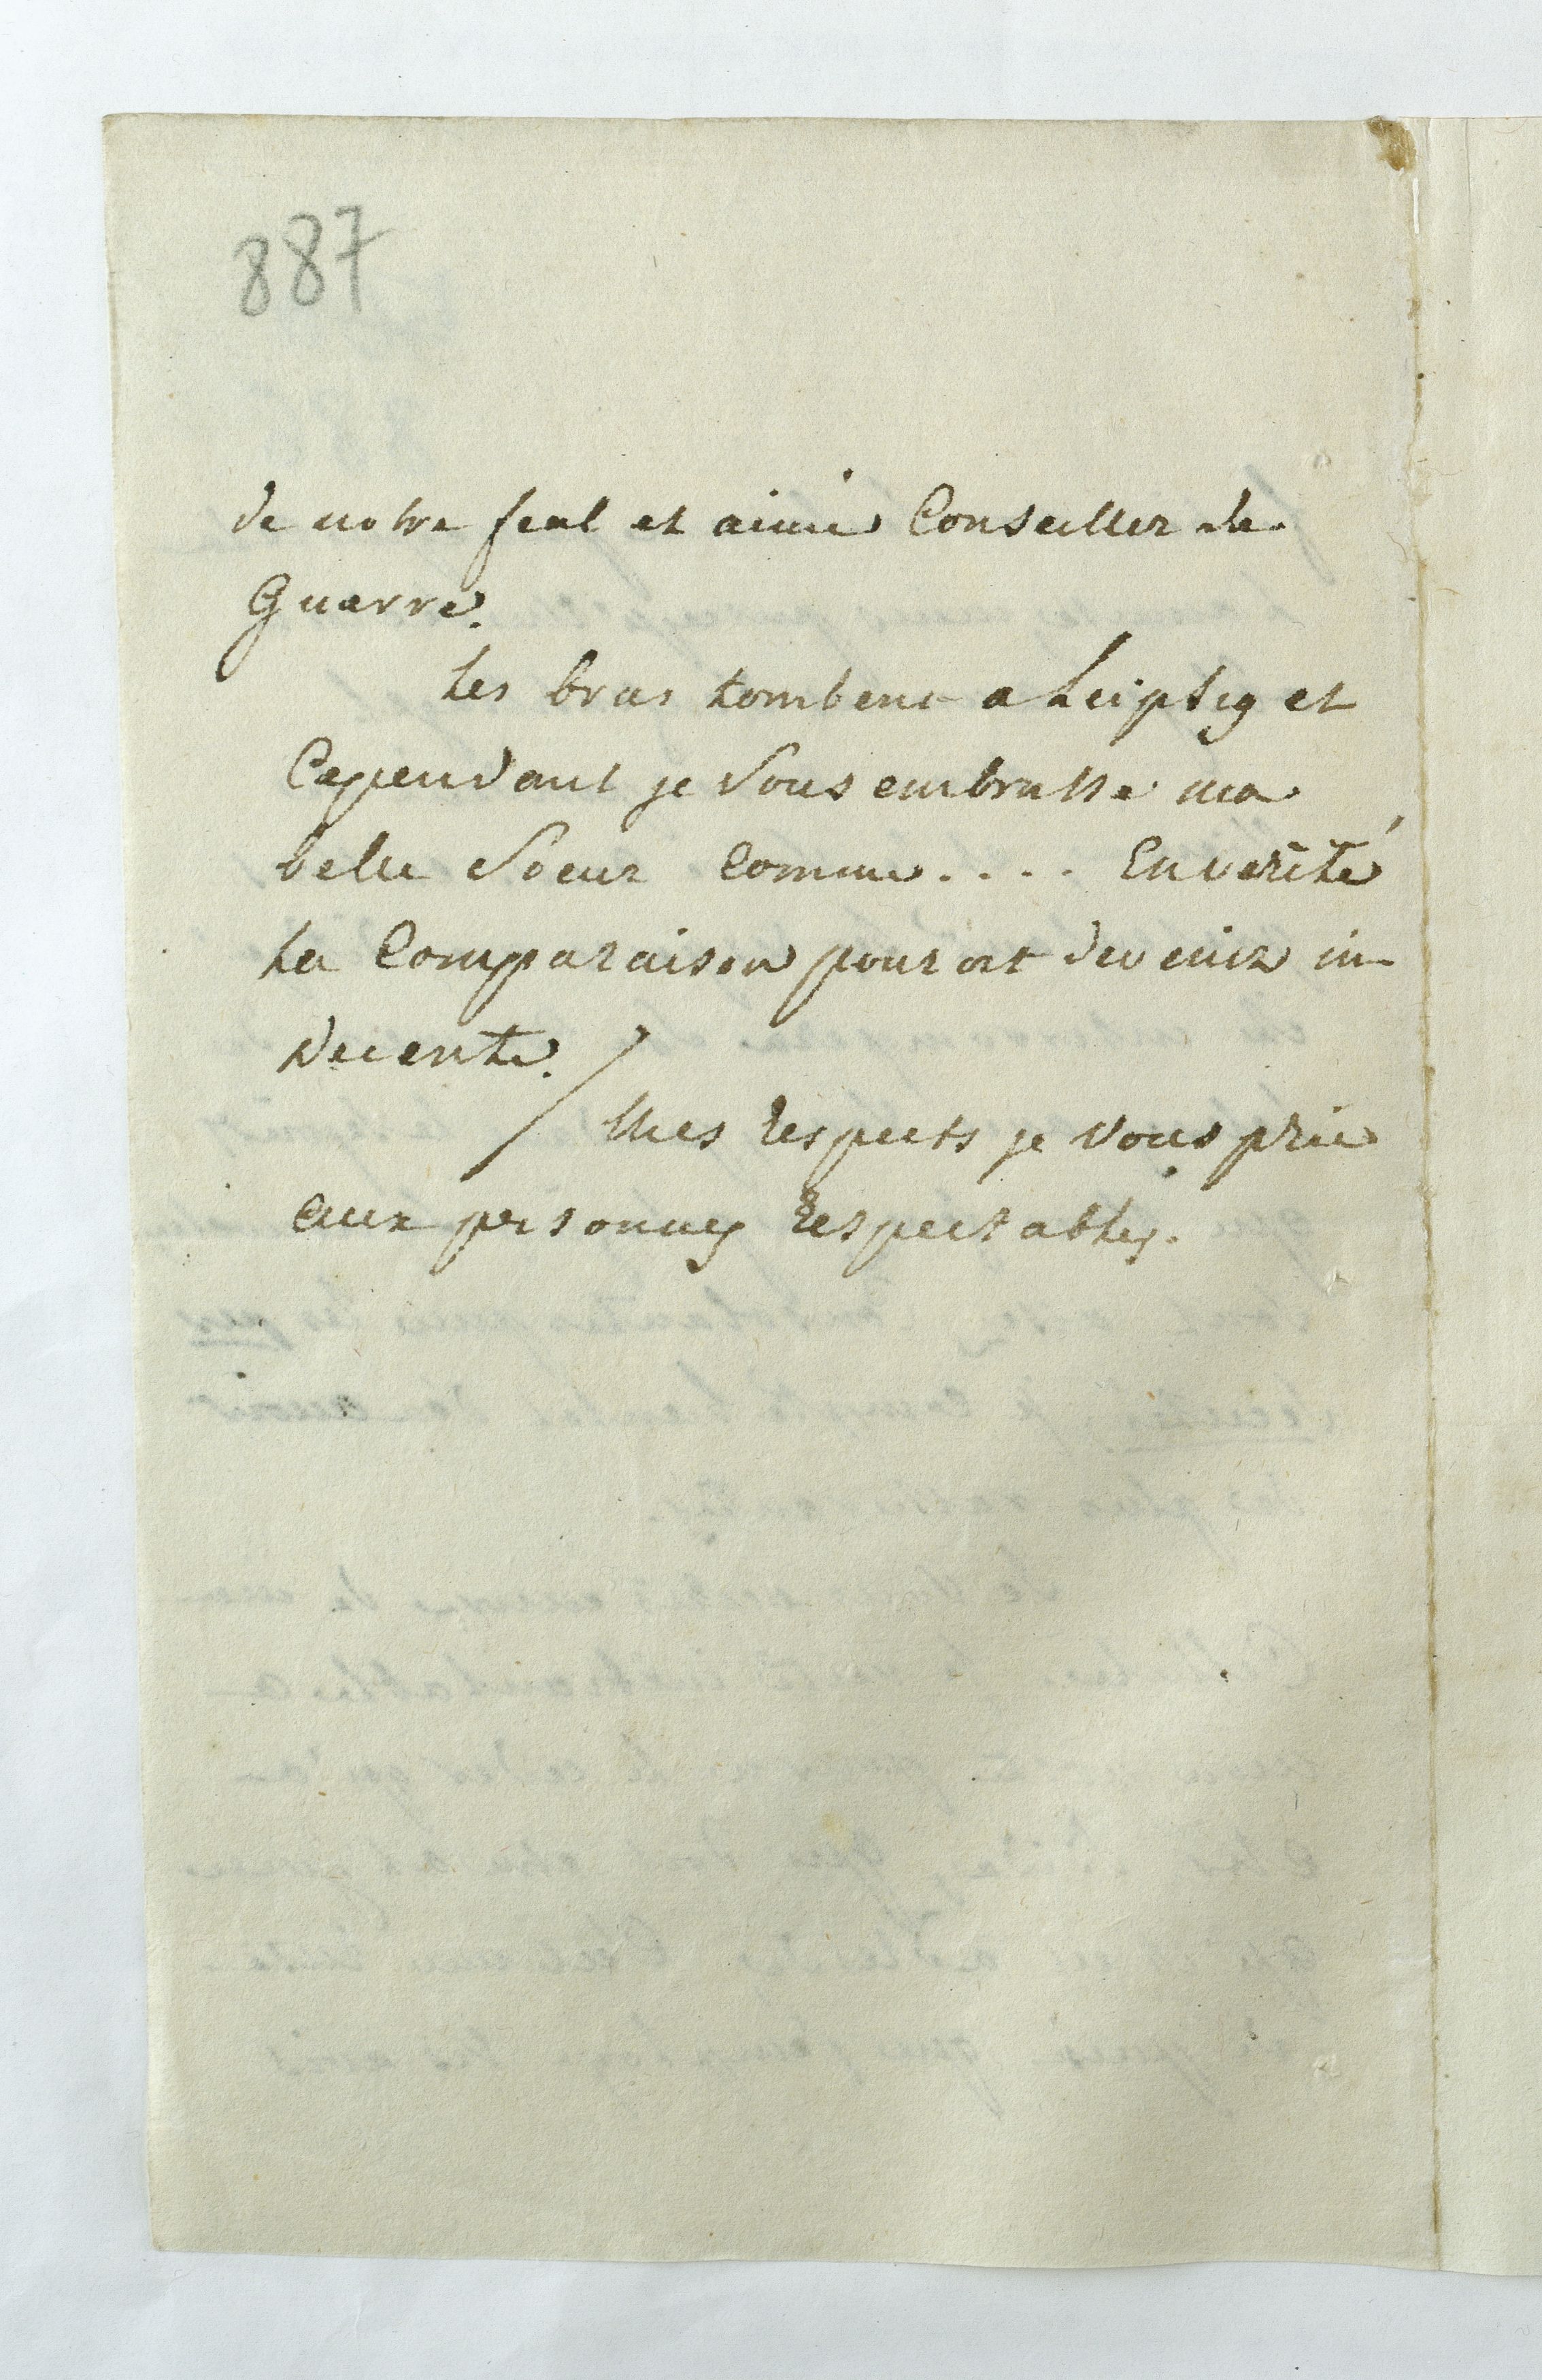 887
de notre feal et aimé Conseiller de
Guerre.
les bras tombent a Leipsig et
Cependant je Vous embrasse ma
belle Soeur Comme.... En verité
la Comparaison pourort devenir in-
decente.
Mes respects je vous prie
aux personnes respectables.